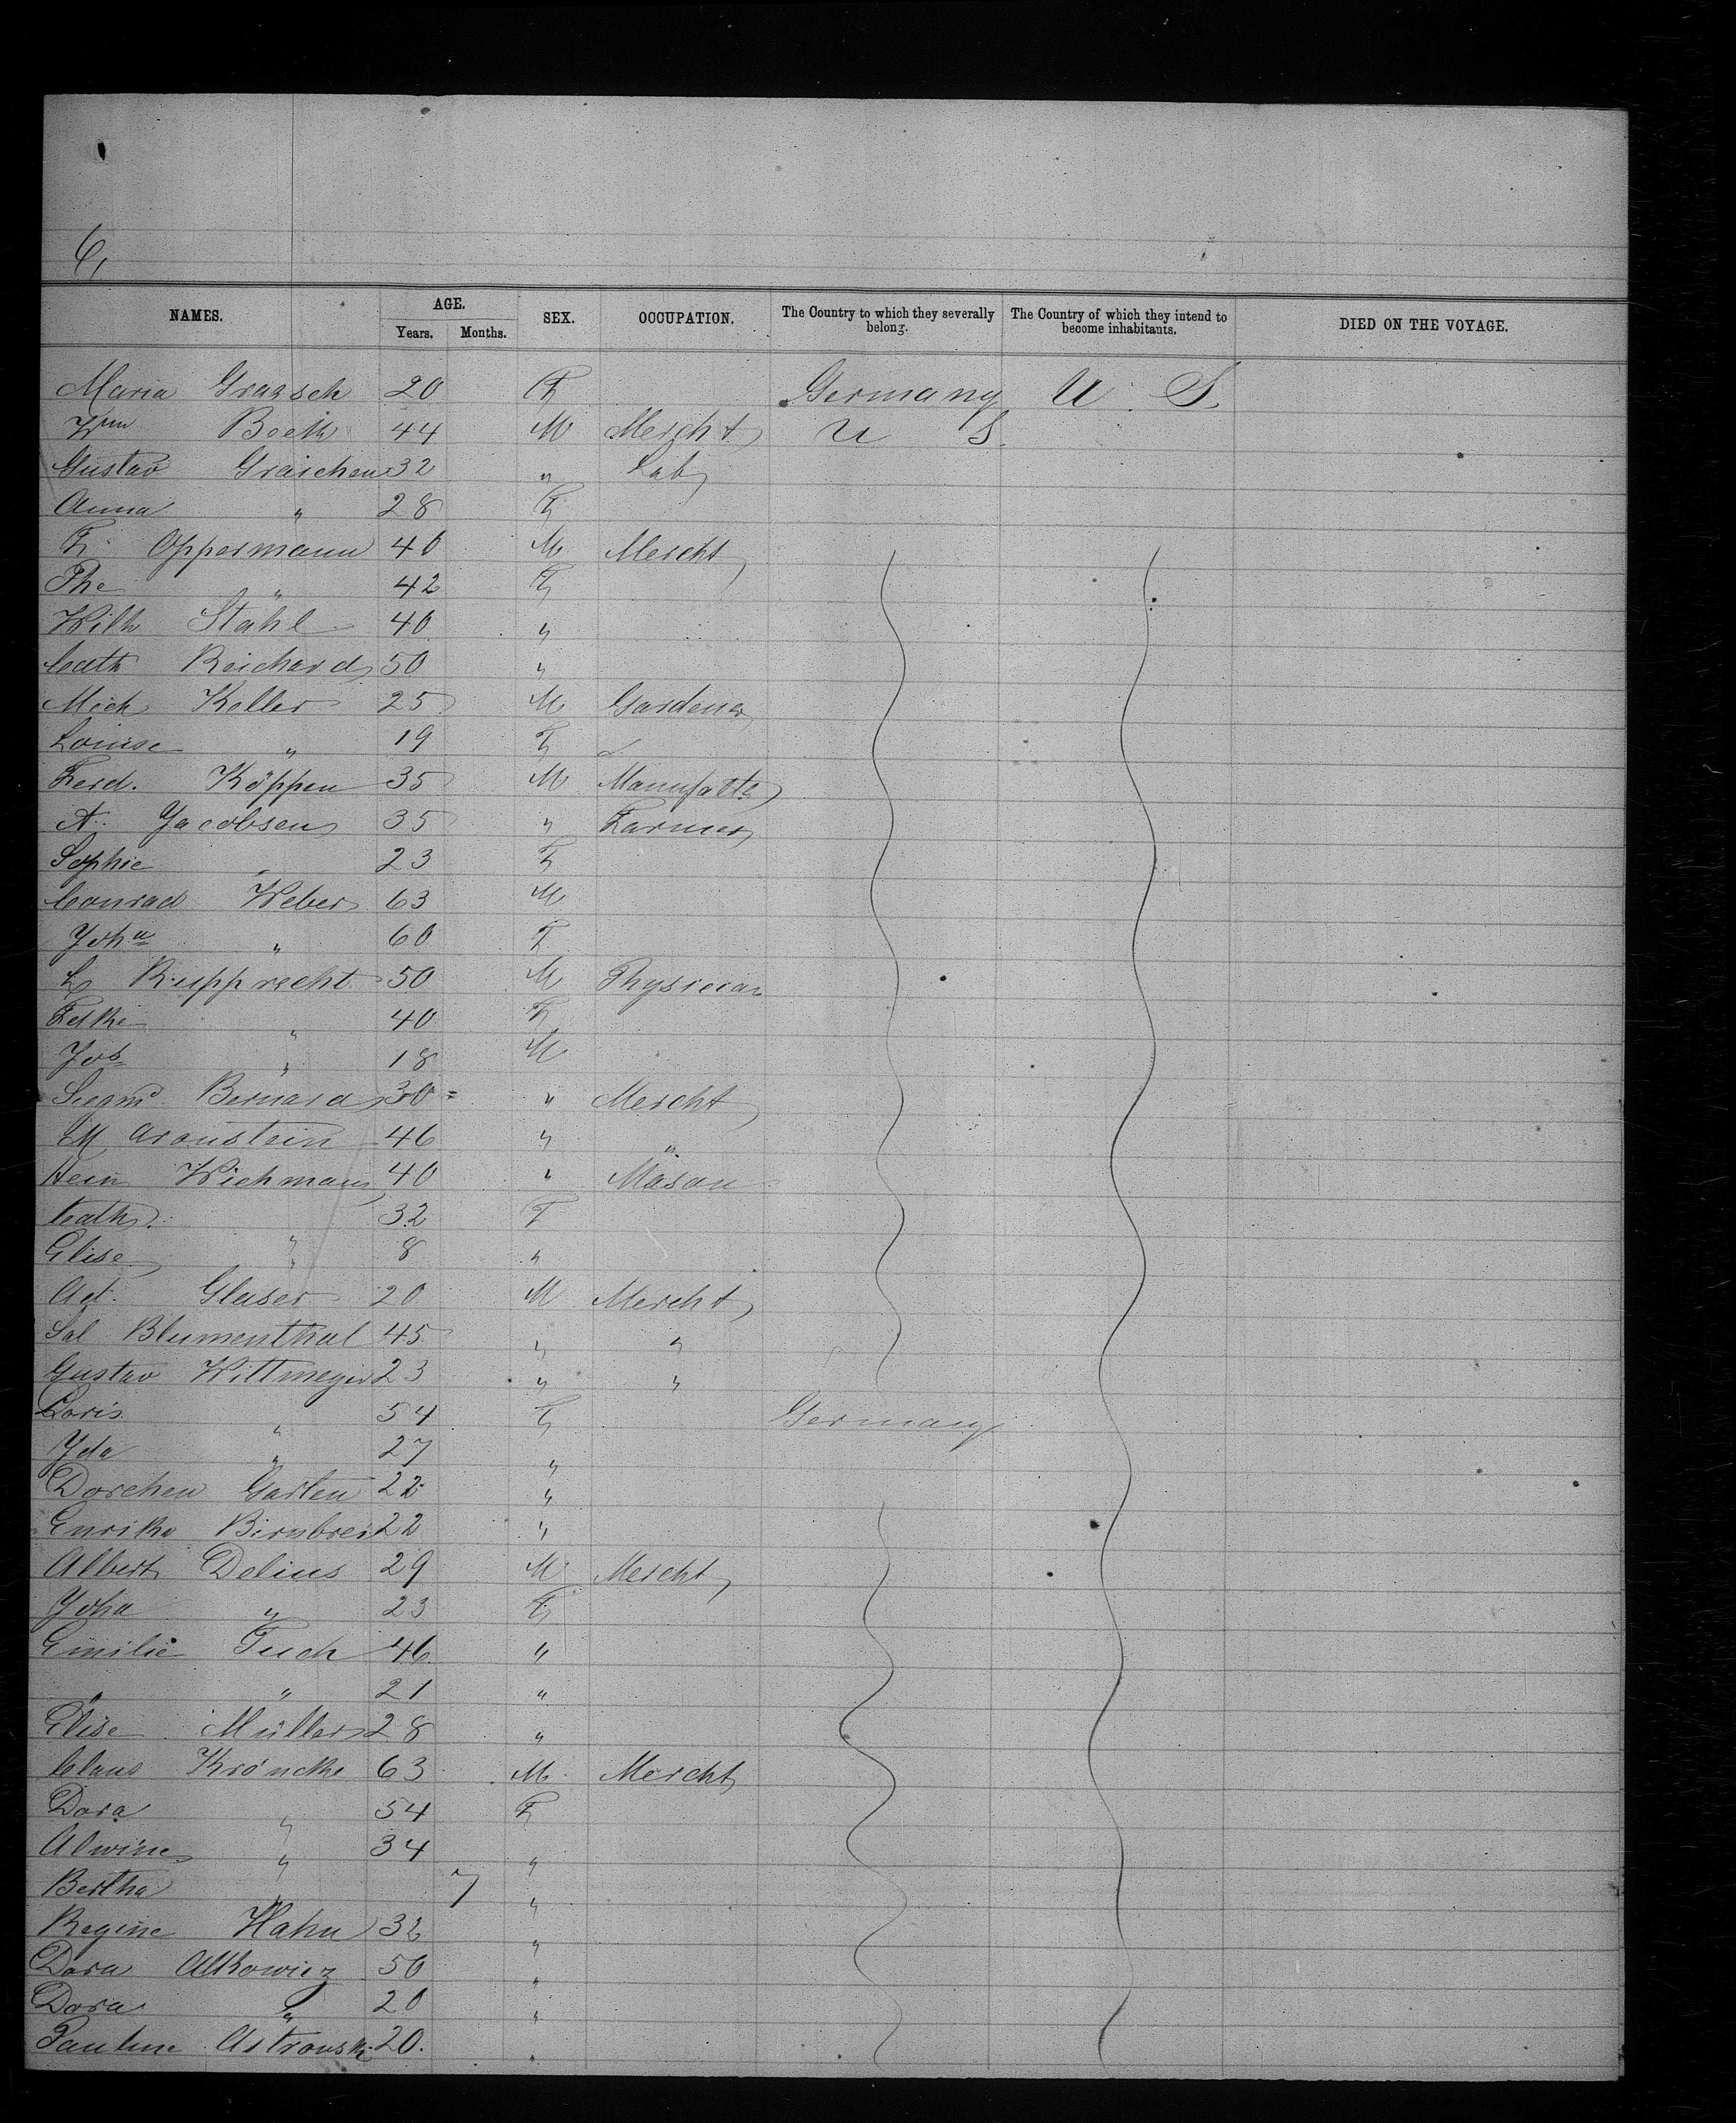 6,
NAMES. AGE. SEX. OCCUPATION. The Country to which they severally belong. The Country of which they intend to become inhabitants. DIED ON THE VOYAGE.
Years. Months.
Maria Graasch 20 F Germany U. S.
Wm Boeth 44 M Mercht U S.
Gustav Graichen 32 " Lab
Anna " 28 F
F. Oppermann 40 M Mercht
The " 42 F
Wilh Stahl 40 "
Cath Reichard 50 "
Mich Keller 25 M Gardener
Louise " 19 F
Ferd. Köppen 35 M Manufattr
A. Jacobsen 35 " Farmer
Sophie " 23 F
Conrad Weber 63 M
Joha " 60 F
L Rupprecht 50 M Physician
" 40 F
Jos " 18 M
Siegmd Bernard 30 " Mercht
M Aronstein 46 " "
Hein Wichmann 40 " Mason
Cath. " 32 F
Elise " 8 "
Ad. Glaser 20 M Mercht
Sal Blumenthal 45 " "
Gustav Wittmeyer 23 " "
Doris " 54 F Germany
Ida " 27 "
Dorchen Garten 22 "
Enrike Birnbrei 22 "
Albert Delius 29 M Mercht
Joha " 23 F
Emilie Tuch 46 "
" " 21 "
Elise Müller 28 "
Claus Kröncke 63 M Mercht
Dora " 54 F
Alwine " 34 "
Bertha " 7 "
Regine Hahn 32 "
Dora Alkowiez 50 "
Dora " 20 "
Pauline Astrowski 20. "